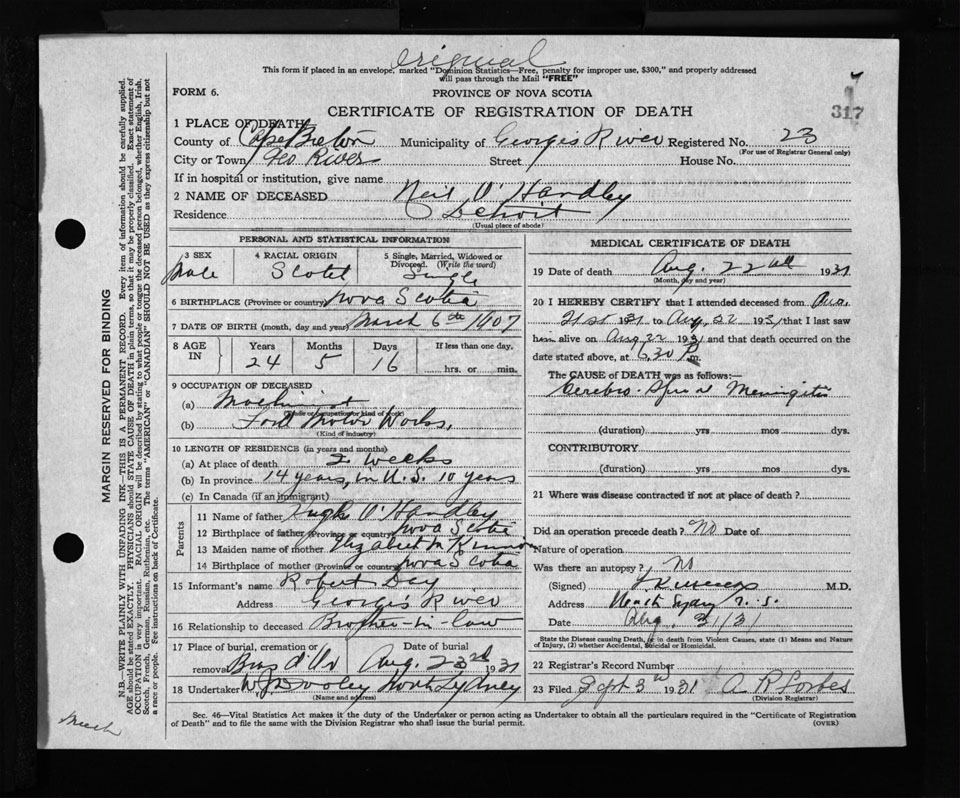 Original
This form if placed in an envelope, marked "Dominion Statistics—Free, penalty for improper use, $300," and properly addressed
will pass through the Mail "FREE"
FORM 6.
PROVINCE OF NOVA SCOTIA
317
CERTIFICATE OF REGISTRATION OF DEATH
1 PLACE OF DEATH
County of Cape Breton Municipality of Georges River Registered No. 23
(For use of Registrar General only)
City or Town Geo River Street House No.
If in hospital or institution, give name
2 NAME OF DECEASED Neil O'Handley
Residence Detroit
(Usual place of abode)
PERSONAL AND STATISTICAL INFORMATION
3 SEX Male
4 RACIAL ORIGIN Scotch
5 Single, Married, Widowed or Divorced. (Write the word) Single
6 BIRTHPLACE (Province or country) Nova Scotia
7 DATE OF BIRTH (month, day and year) March 6th 1907
8 AGE IN Years Months Days If less than one day.
24 5 16 hrs. or min.
9 OCCUPATION OF DECEASED
(a) Machinist
(b) Ford Motor Works.
(Kind of industry)
10 LENGTH OF RESIDENCE (in years and months)
(a) At place of death 2 weeks
(b) In province 14 years, in U.S. 10 years
(c) In Canada (if an immigrant)
Parents
11 Name of father Hugh O'Handley
12 Birthplace of father (Province or country) Nova Scotia
13 Maiden name of mother Elizabeth
14 Birthplace of mother (Province or country) Nova Scotia
15 Informant's name Robert Day
Address Georges River
16 Relationship to deceased Brother-in-law
17 Place of burial, cremation or removal Bras d'Or
Date of burial Aug 23rd 1931
18 Undertaker W J Dooley North Sydney
(Name and address)
MEDICAL CERTIFICATE OF DEATH
19 Date of death Aug. 22nd 1931
(Month, day and year)
20 I HEREBY CERTIFY that I attended deceased from Aug.
21st 1931 to Aug 22 1931 that I last saw
him alive on Aug 22 1931 and that death occurred on the
date stated above, at 6.30 P m.
The CAUSE of DEATH was as follows:—
Cerebro-Spinal Meningitis
(duration) yrs mos dys.
CONTRIBUTORY
(duration) yrs mos dys.
21 Where was disease contracted if not at place of death?
Did an operation precede death? No Date of
Nature of operation
Was there an autopsy? No
(Signed) M.D.
Address North Sydney N.S.
Date Aug. 31/31
State the Disease causing Death, or in death from Violent Causes, state (1) Means and Nature
of Injury, (2) whether Accidental, Suicidal or Homicidal.
22 Registrar's Record Number
23 Filed Sept 3rd 1931 A R Forbes
(Division Registrar)
Sec. 46—Vital Statistics Act makes it the duty of the Undertaker or person acting as Undertaker to obtain all the particulars required in the "Certificate of Registration
of Death" and to file the same with the Division Registrar who shall issue the burial permit.
(OVER)
MARGIN RESERVED FOR BINDING
N.B.—WRITE PLAINLY WITH UNFADING INK—THIS IS A PERMANENT RECORD. Every item of information should be carefully supplied.
AGE should be stated EXACTLY. PHYSICIANS should STATE CAUSE OF DEATH in plain terms, so that it may be properly classified. Exact statement of
OCCUPATION is very important. RACIAL ORIGIN will be described by stating to what people or tongue the deceased person belonged, whether English, Irish,
Scotch, French, German, Russian, Ruthenian, etc. The terms "AMERICAN" or "CANADIAN" SHOULD NOT BE USED as they express citizenship but not
a race or people. See instructions on back of Certificate.